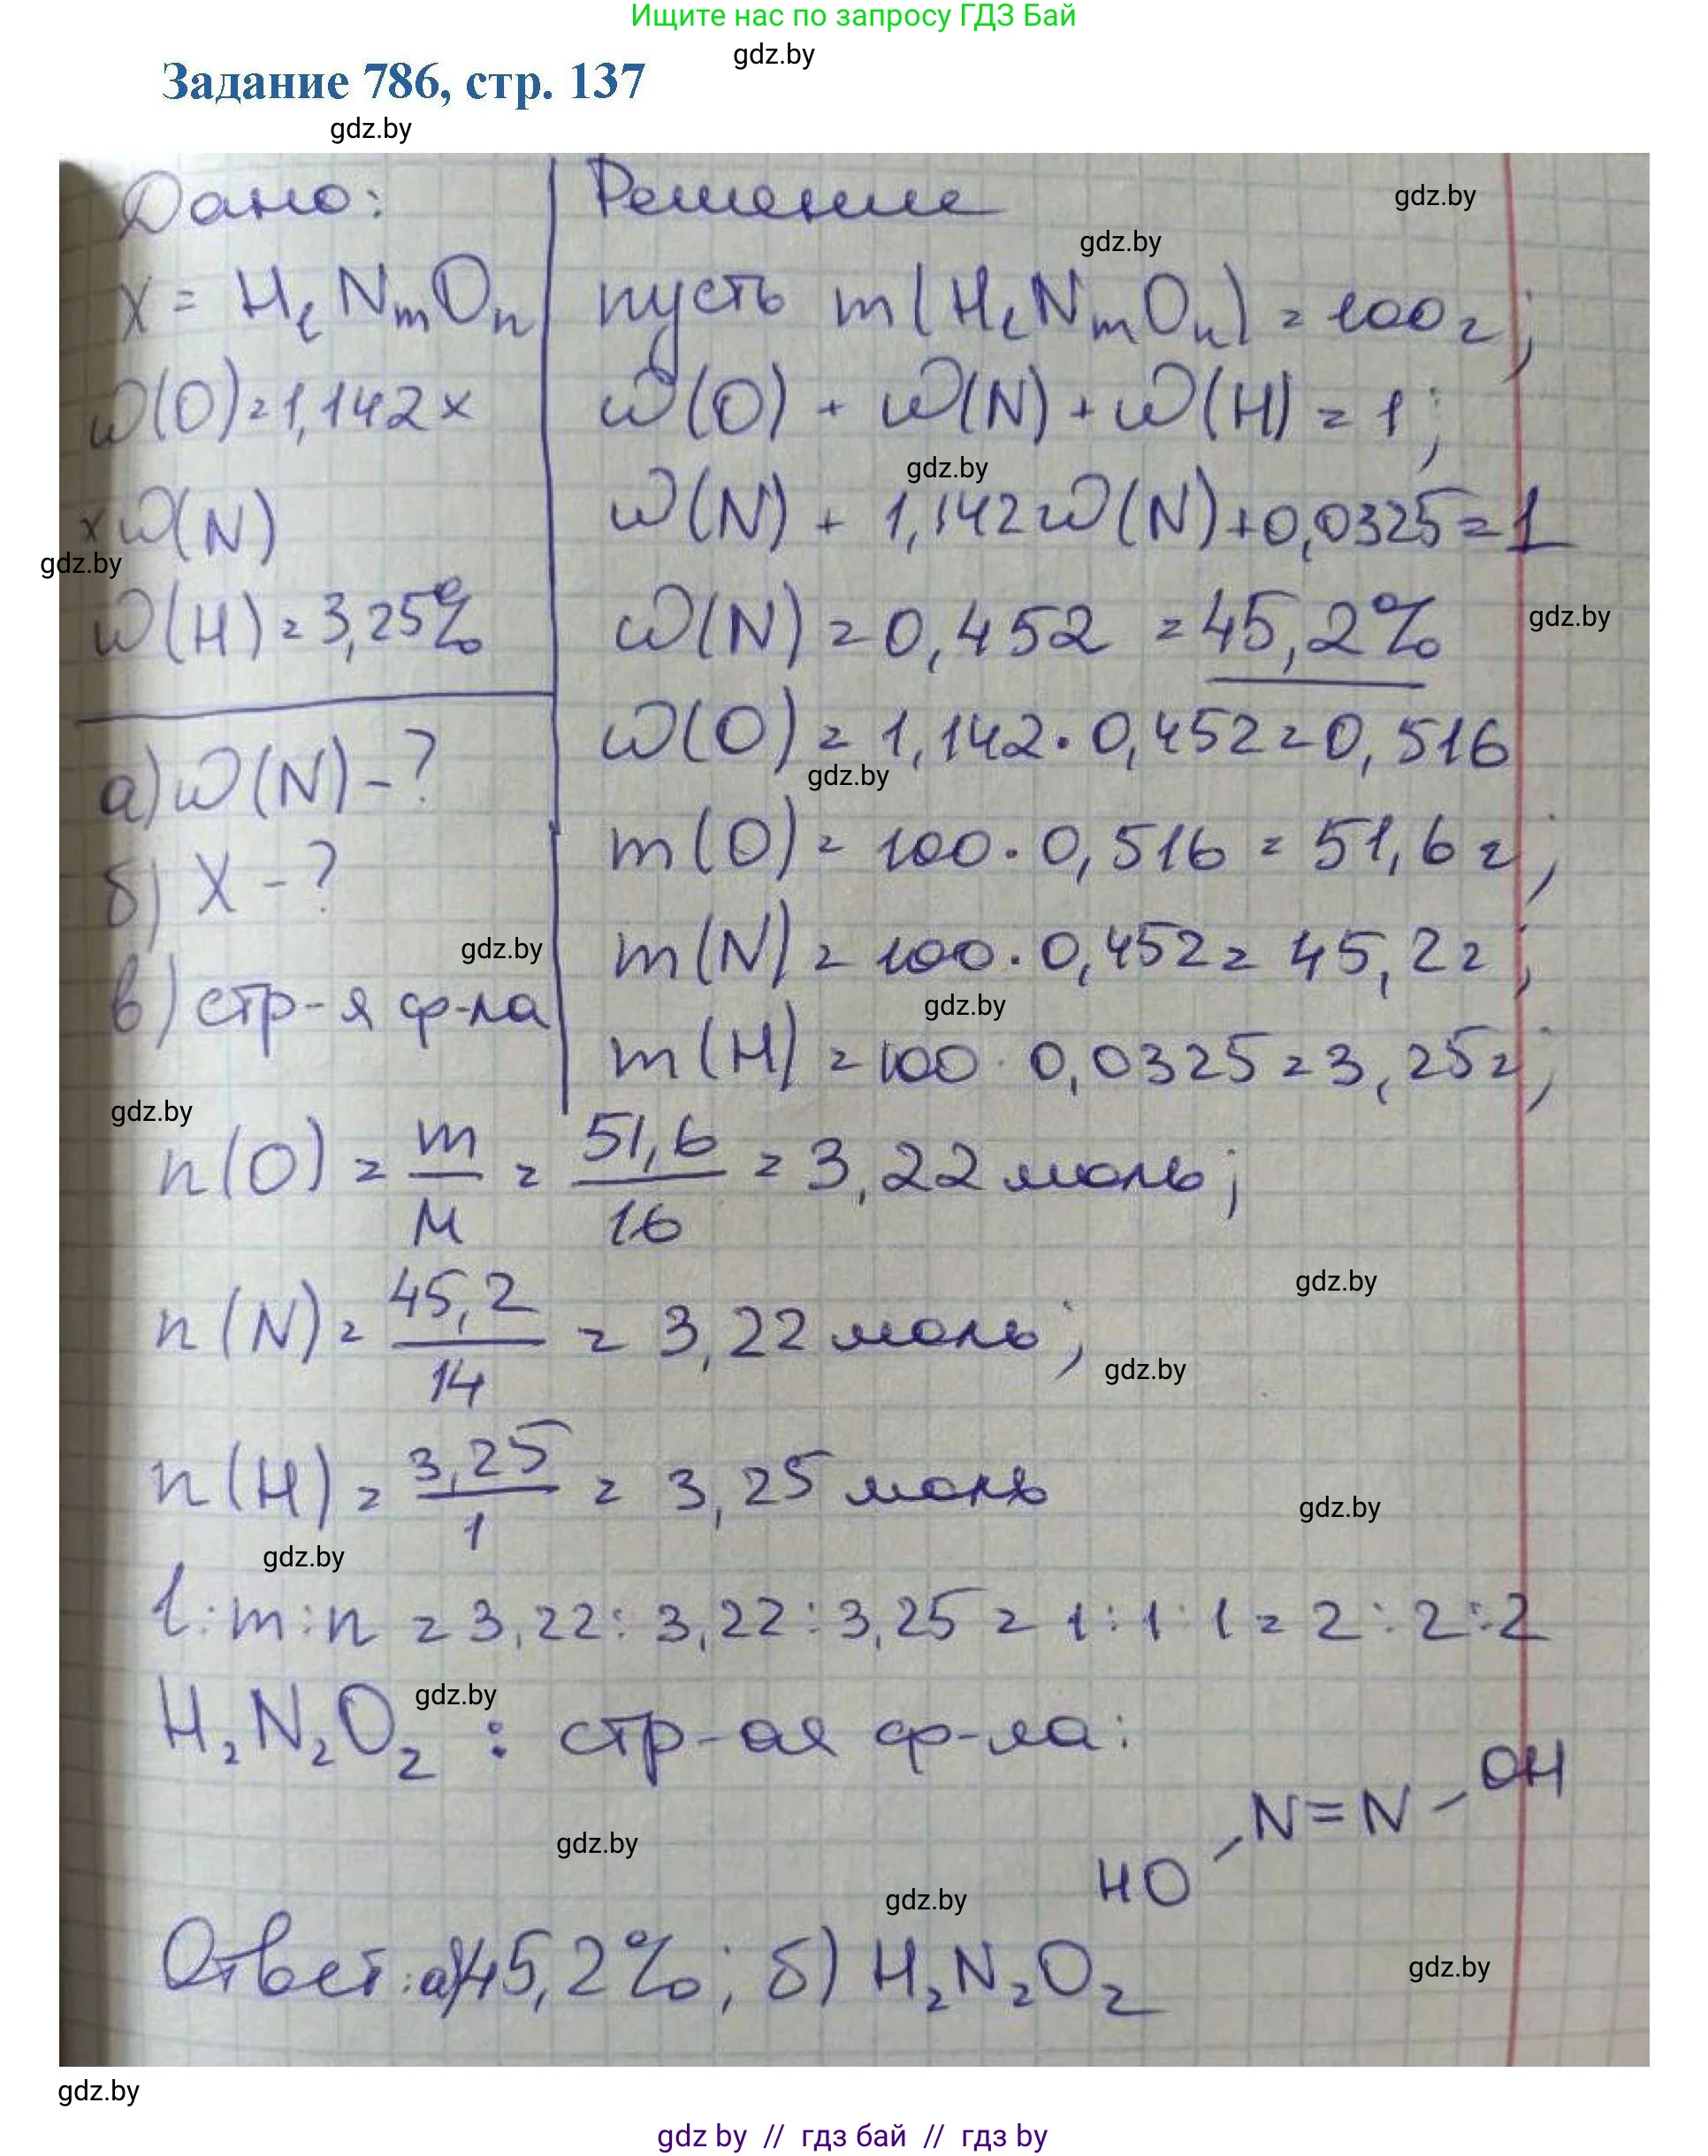 Ищите нас по запросу ГДЗ Бай
gdz.by
Задание 786, стр. 137
gdz.by
Дано:
x = HₗNₘOₙ
ω(O)=1,142 x
x ω(N)
gdz.by
ω(H)=3,25%
а) ω(N) - ?
б) X - ?
в) стр-я ф-ла
Решение
gdz.by
gdz.by
пусть m(HₗNₘOₙ) = 100 г;
ω(O) + ω(N) + ω(H) = 1;
gdz.by
ω(N) + 1,142 ω(N) + 0,0325 = 1
ω(N) = 0,452 = 45,2%
gdz.by
ω(O) = 1,142 · 0,452 = 0,516
gdz.by
m(O) = 100 · 0,516 = 51,6 г;
gdz.by
m(N) = 100 · 0,452 = 45,2 г;
gdz.by
m(H) = 100 · 0,0325 = 3,25 г;
gdz.by
n(O) = m/M = 51,6/16 = 3,22 моль;
gdz.by
n(N) = 45,2/14 = 3,22 моль;
gdz.by
n(H) = 3,25/1 = 3,25 моль
gdz.by
gdz.by
l : m : n = 3,22 : 3,22 : 3,25 = 1 : 1 : 1 = 2 : 2 : 2
gdz.by
H₂N₂O₂ : стр-ая ф-ла:
HO - N = N - OH
gdz.by
gdz.by
Ответ: а) 45,2%; б) H₂N₂O₂
gdz.by
gdz.by
gdz by // гдз бай // гдз by